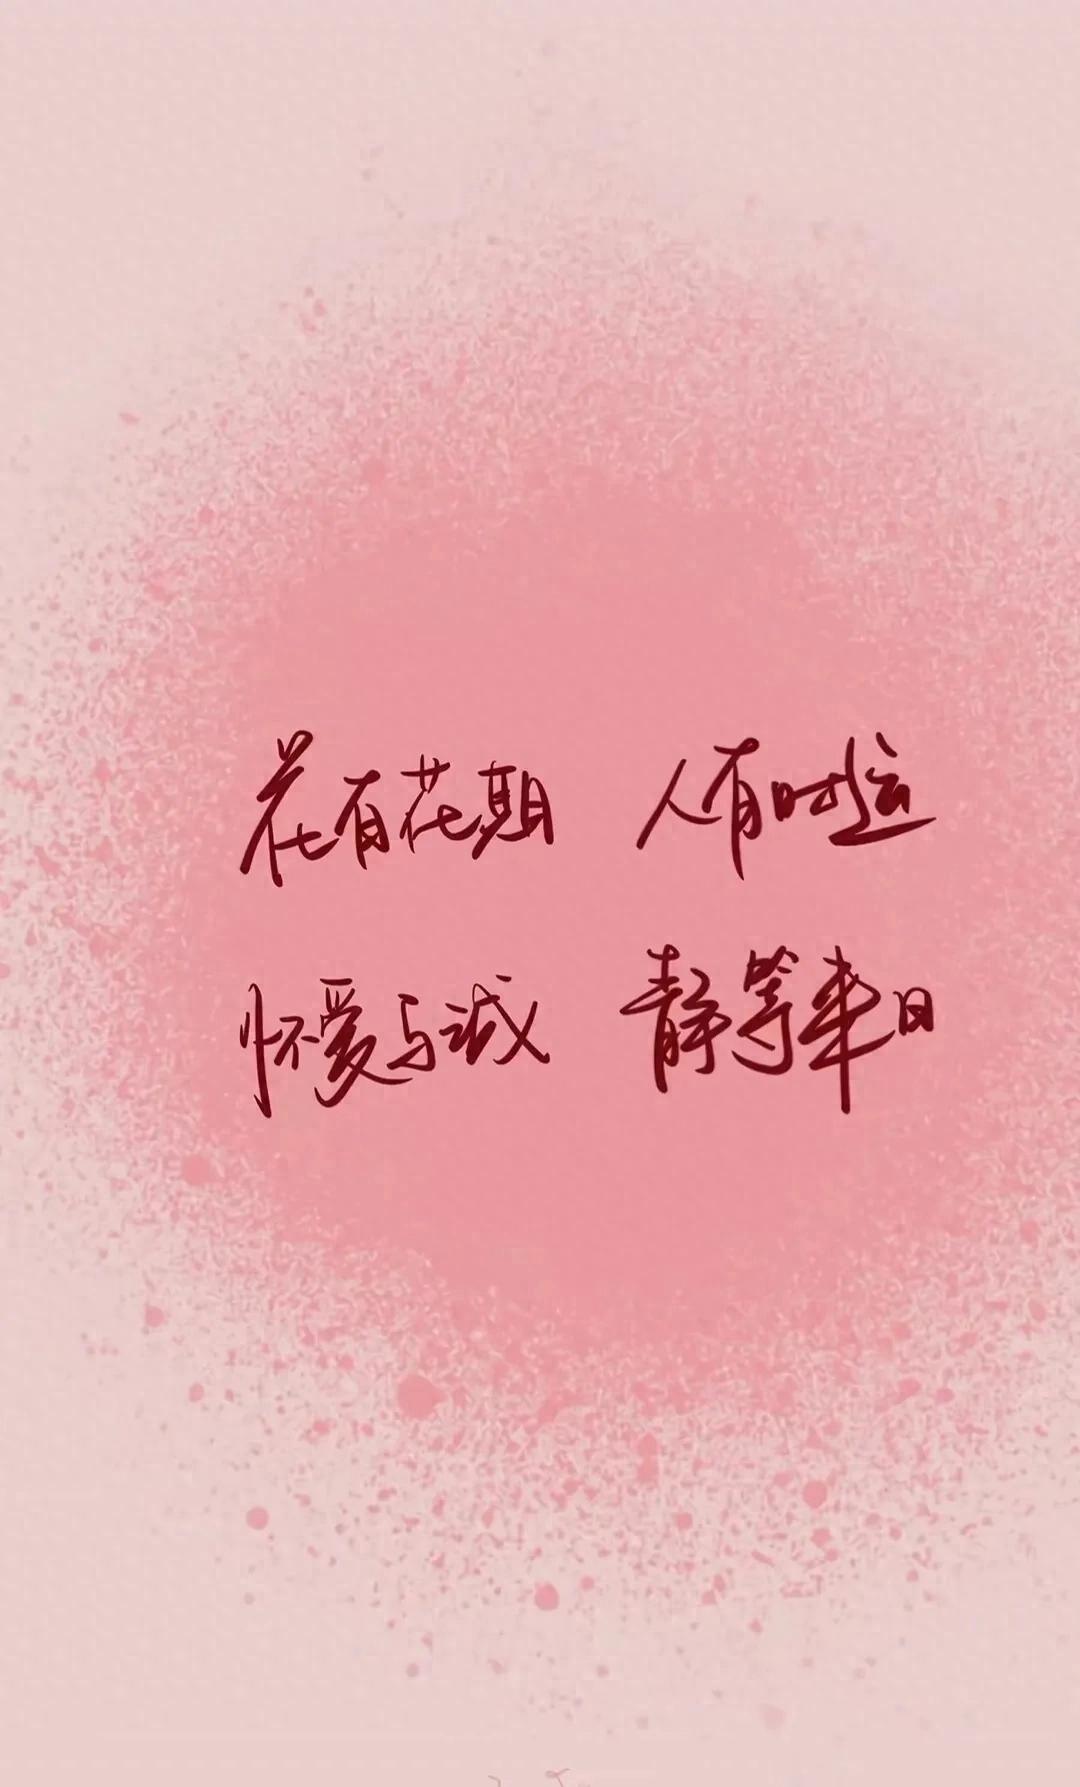 花有花期 人有时运
怀爱与诚 静等来日